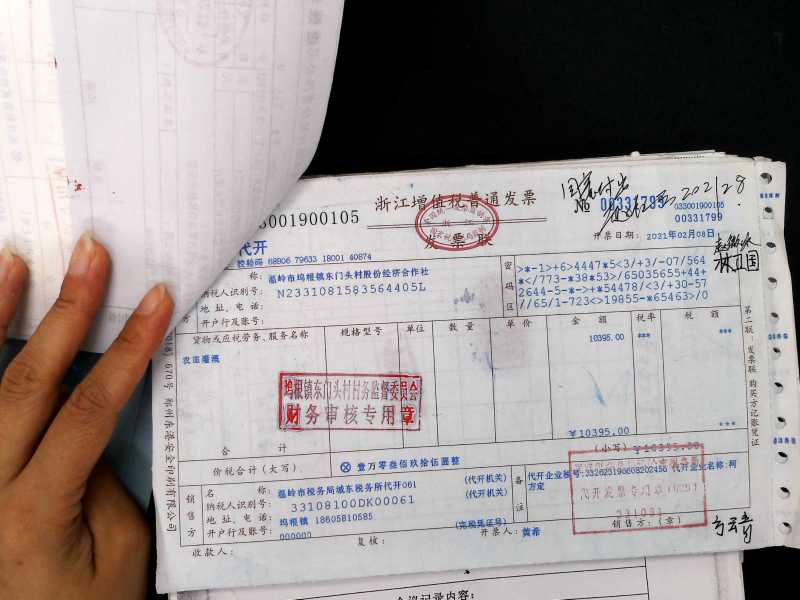 3001900105
浙江增值税普通发票
发票联
00331799
033001900105
00331799
开票日期：2021年02月08日
代开
校验码 68806 79633 18001 40874
名称：温岭市坞根镇东门头村股份经济合作社
纳税人识别号：N2331081583564405L
地址、电话：
方 开户行及账号：
密码区
>*-1>+6>4447*5<3/+3/-07/564
*</773-*38*53>/65035655+44+
2644-5-*->+*54478/<3/+30-57
//65/1-723<>19855-*65463>/0
林卫国
货物或应税劳务、服务名称 规格型号 单位 数量 单价 金额 税率 税额
农田灌溉 10395.00 *** ***
坞根镇东门头村村务监督委员会
财务审核专用章
合计 ￥10395.00 ***
价税合计（大写） ⊗ 壹万零叁佰玖拾伍圆整 （小写）￥10395.00
销售方
名称：温岭市税务局城东税务所代开061 （代开机关）
纳税人识别号：33108100DK00061 （代开机关）
地址、电话：坞根镇 18605810585
开户行及账号：000000 （完税凭证号）
备注
代开企业税号：332623196608202456 代开企业名称：柯方定
代开发票专用章
收款人： 复核： 开票人：黄希 销售方：（章）
第二联：发票联 购买方记账凭证
670号 郑州东港安全印刷有限公司
会议记录内容：